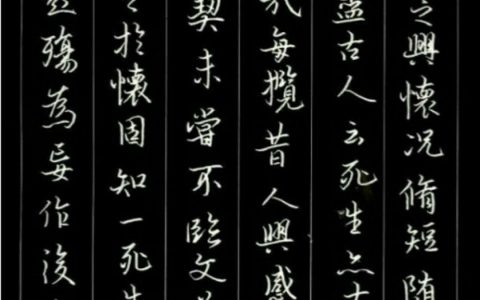 之興懷况脩短随
盡古人云死生亦大
哉每攬昔人興感
契未嘗不臨文
於懷固知一死生
殤為妄作後